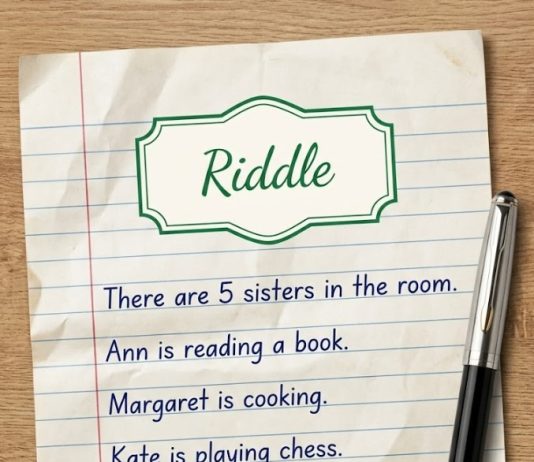 Riddle
There are 5 sisters in the room.
Ann is reading a book.
Margaret is cooking.
Kate is playing chess.